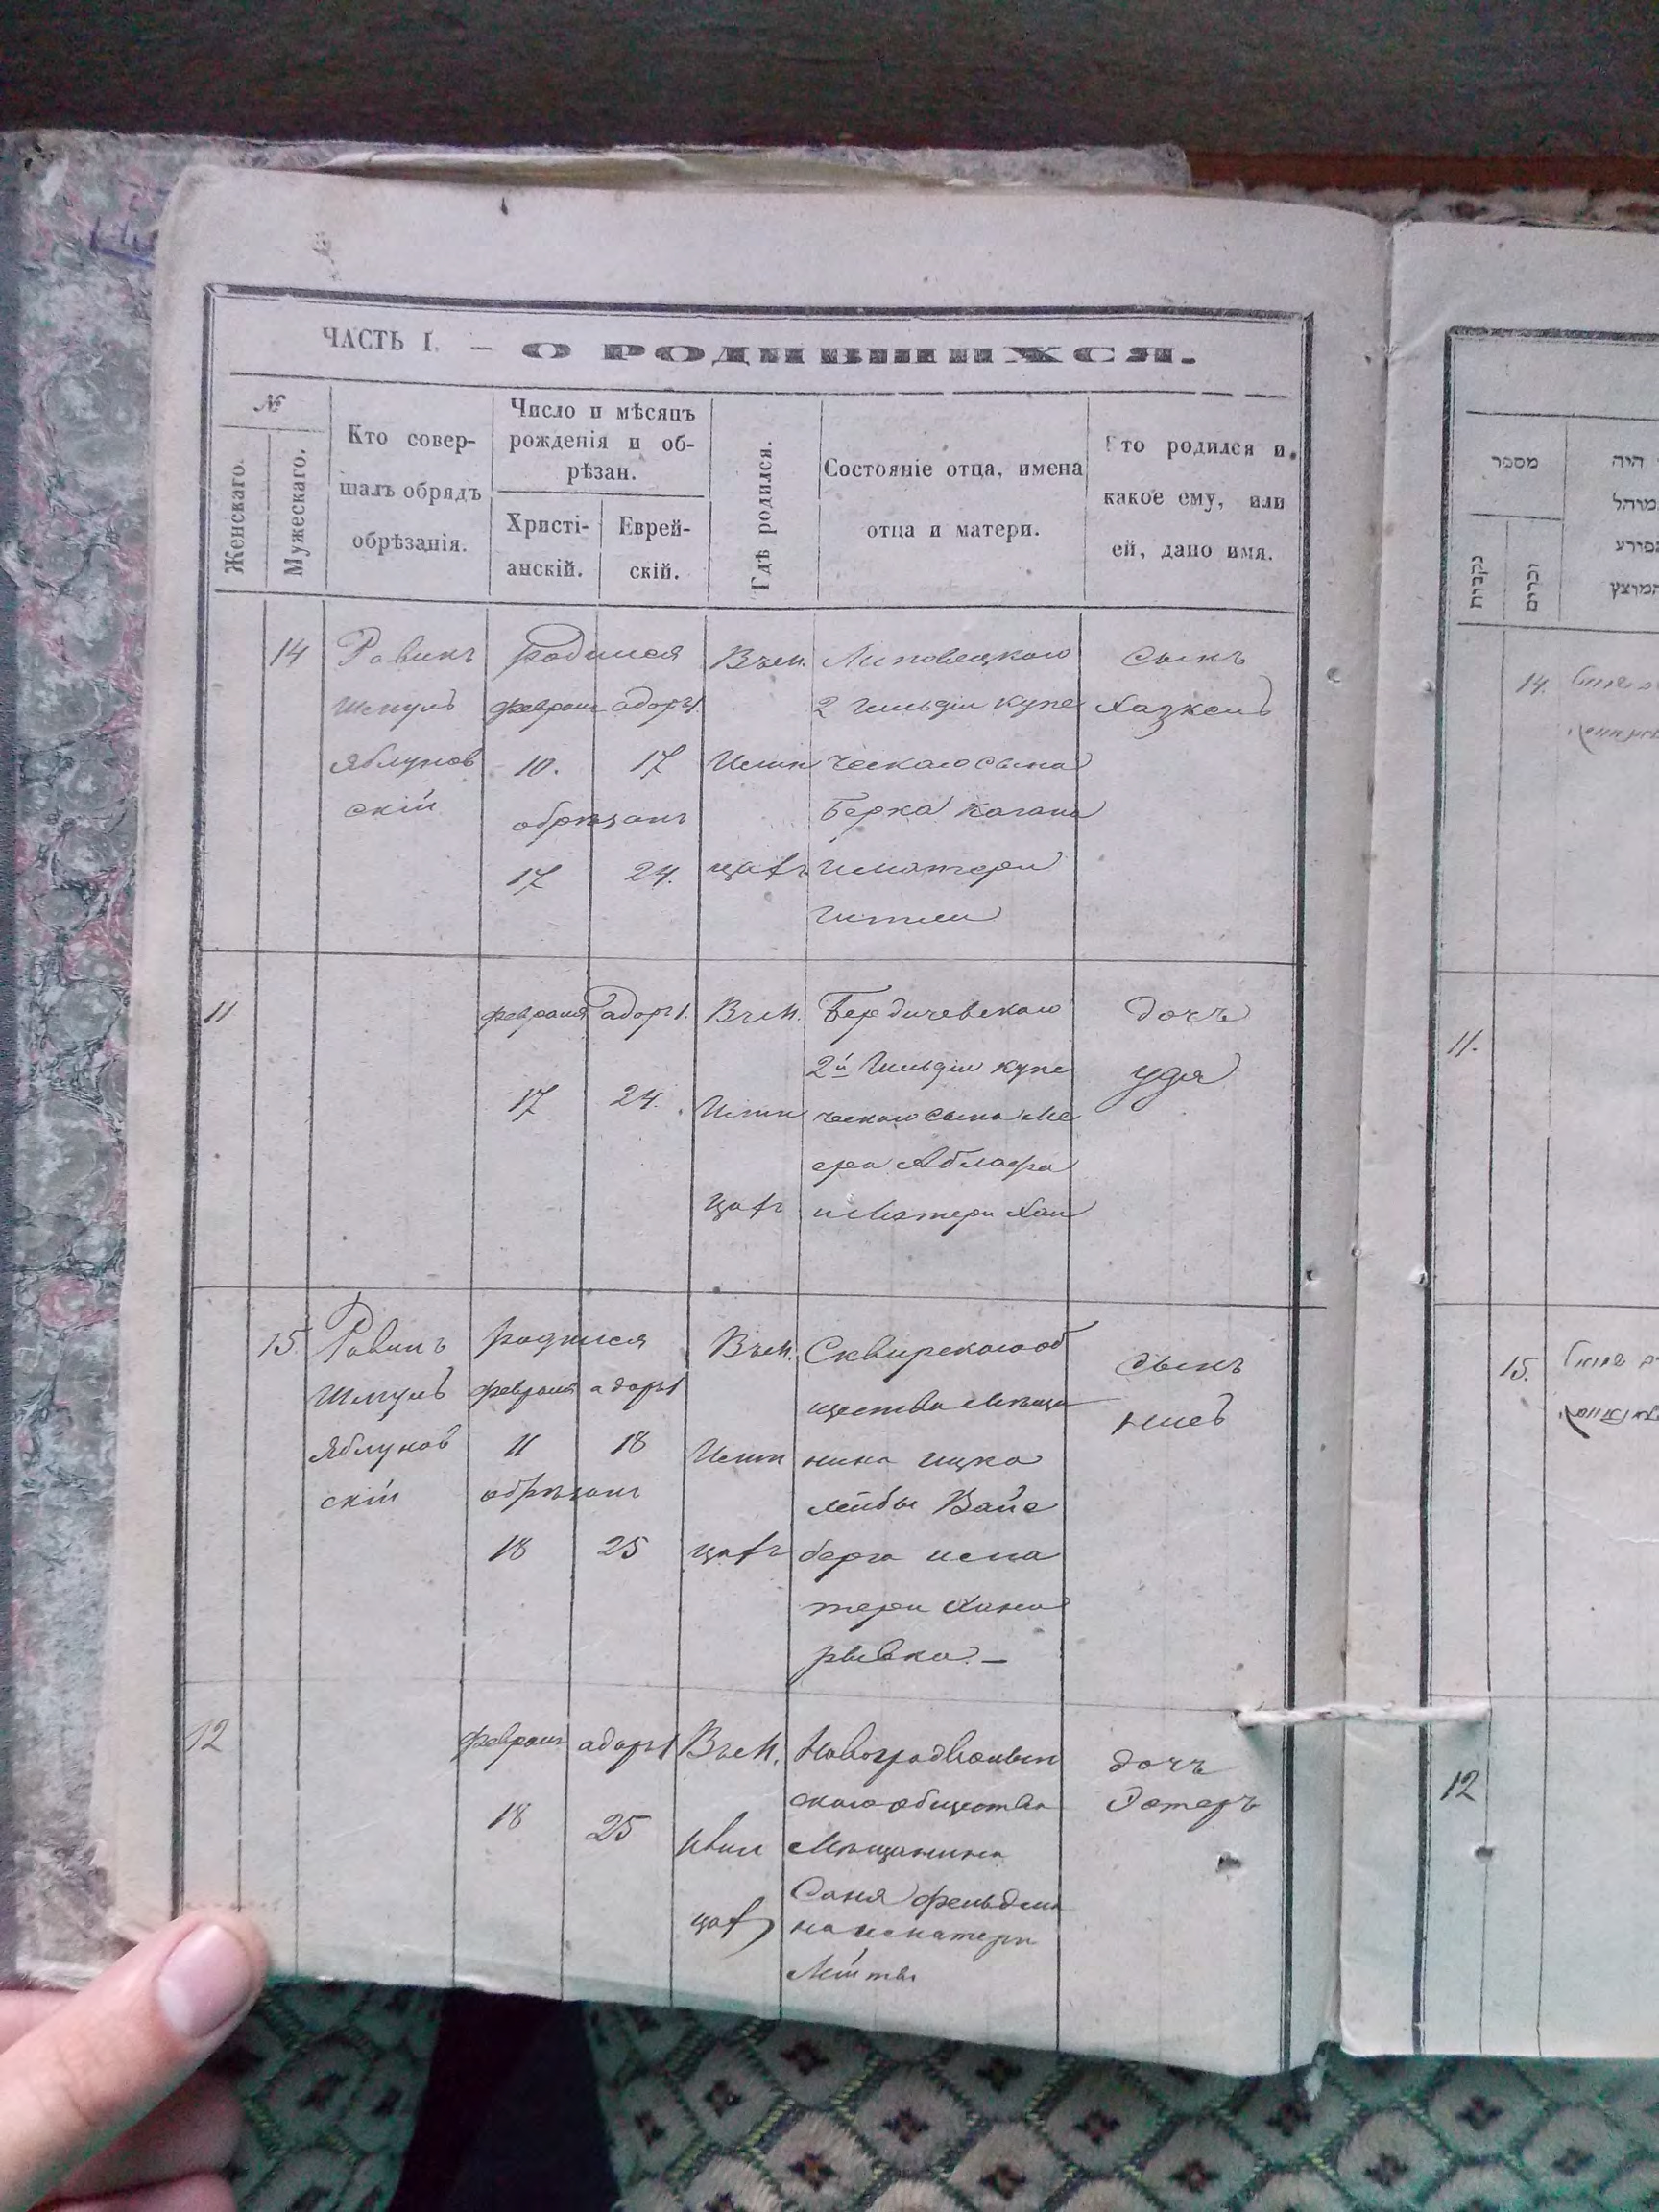 ЧАСТЬ I. — О РОДИВШИХСЯ.
№
Женскаго.
Мужескаго.
Кто совер-
шалъ обрядъ
обрѣзанія.
Число и мѣсяцъ
рожденія и об-
рѣзан.
Христі-
анскій.
Еврей-
скій.
Гдѣ родился.
Состояніе отца, имена
отца и матери.
Кто родился и
какое ему, или
ей, дано имя.
14
Равинъ
Шмуль
Яблунов
скій
родился
февраля адаръ 1.
10. 17
обрѣзанъ
17 24.
Въ м.
цахъ
Липовецкаго
2 Гильдіи купе
ческаго сына
Берка Кагана
и матери
Гитли
сынъ
Хазкель
11
февраля адаръ 1.
17 24.
Въ м.
цахъ
Бердичевскаго
2й Гильдіи купе
ческаго сына Ме
ера
и Матери Хаи
дочь
Удя
15.
Равинъ
Шмуль
Яблунов
скій
родился
февраля адаръ 1
11 18
обрѣзанъ
18 25
Въ м.
цахъ
Сквирскаго об
щества мѣща
нина Ицка
Лейбы Вайс
берга и ма
тери Хана
рывка. —
сынъ
12
февраля адаръ 1
18 25
Въ м.
Новоградволын
скаго общества
Мѣщанина
Саня Фельдма
на и матери
дочь
Эстеръ
מספר
נקבות
זכרים
היה
14.
11.
15.
12